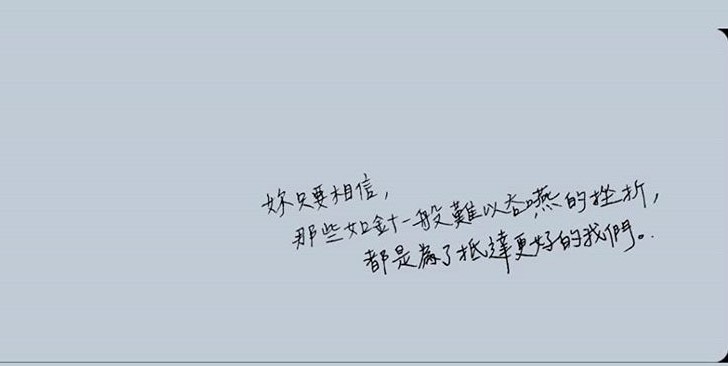 妳只要相信，
那些如針一般難以吞嚥的挫折，
都是為了抵達更好的我們。